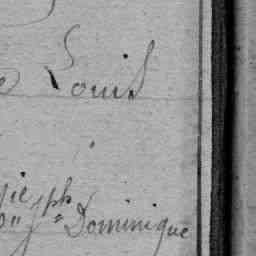 Louis
Jph Dominique